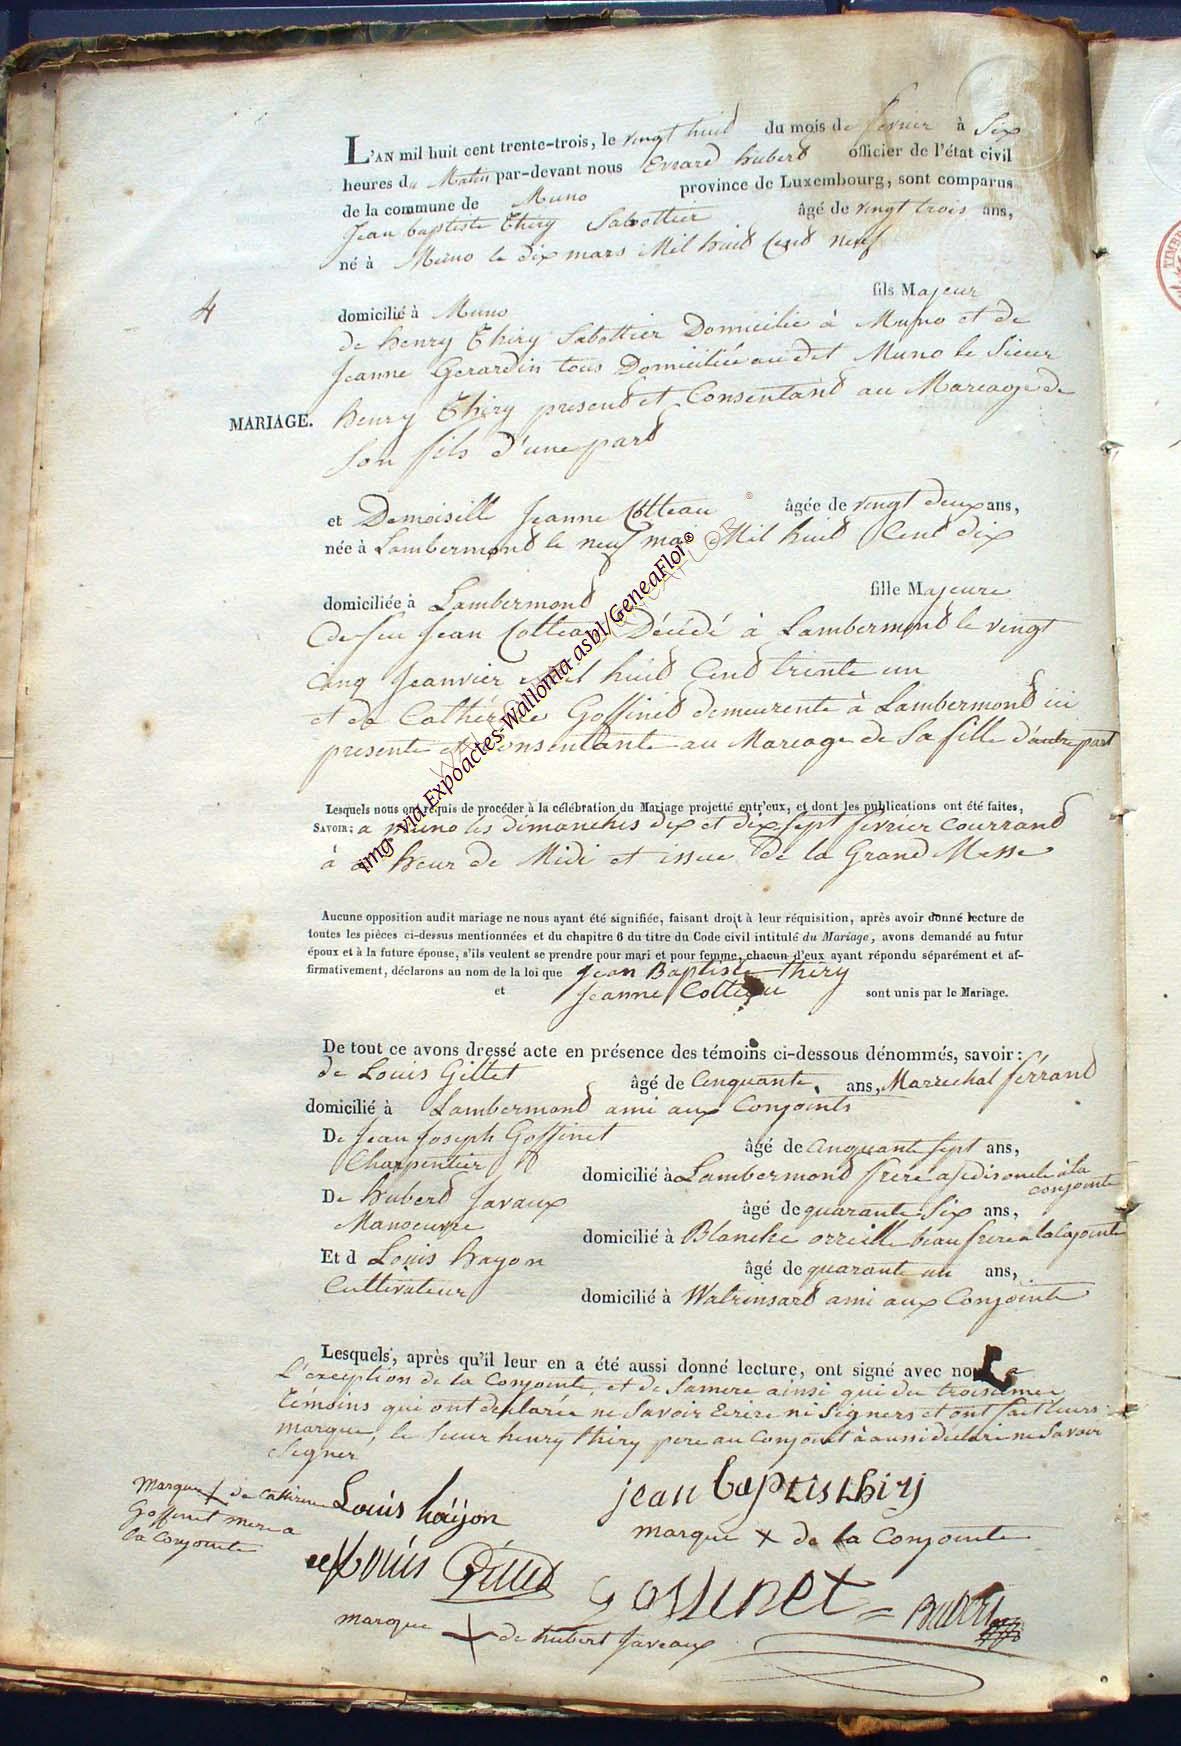 L'AN mil huit cent trente-trois, le vingt huit du mois de fevrier à Six
heures du Matin par-devant nous Evrard hubert officier de l'état civil
de la commune de Muno province de Luxembourg, sont comparus
Jean baptiste Thiry Sabottier âgé de vingt trois ans,
né à Muno le dix mars Mil huit Cent neuf
domicilié à Muno fils Majeur
4
de henry Thiry Sabottier Domicilié à Muno et de
Jeanne Gerardin tous Domiciliée audit Muno le Sieur
MARIAGE.
henry Thiry present et Consentant au Mareage de
Son fils d'une part
et Demoisille Jeanne Cotteau âgée de vingt deux ans,
née à Lambermont le neuf mai Mil huit Cent dix
domiciliée à Lambermont fille Majeure
de feu Jean Cotteau Décédé à Lambermont le vingt
Cinq Jeanvier Mil huit Cent trente un
et de Cathérine Goffinet demeurente à Lambermont ici
presente et Consentante au Mareage de Sa fille d'autre part
Lesquels nous ont requis de procéder à la célébration du Mariage projetté entr'eux, et dont les publications ont été faites,
SAVOIR: a muno les dimanches dix et dix Sept fevrier Courrand
à heur de Midi et issue de la Grand Messe
Aucune opposition audit mariage ne nous ayant été signifiée, faisant droit à leur réquisition, après avoir donné lecture de
toutes les pièces ci-dessus mentionnées et du chapitre 6 du titre du Code civil intitulé du Mariage, avons demandé au futur
époux et à la future épouse, s'ils veulent se prendre pour mari et pour femme, chacun d'eux ayant répondu séparément et af-
firmativement, déclarons au nom de la loi que Jean Baptiste thiry
et Jeanne Cotteau sont unis par le Mariage.
De tout ce avons dressé acte en présence des témoins ci-dessous dénommés, savoir:
de Louis Gillet âgé de Cenquante ans, Marrechal férrand
domicilié à Lambermont ami aux Conjoints
De Jean Joseph Goffinet âgé de Cinquante Sept ans,
Charpentier domicilié à Lambermond frere à la
conjointe
De hubert Javaux âgé de quarante Six ans,
Manoeuvre domicilié à Blanche orreille beau frere a la Cojointe
Et d Louis hayon âgé de quarante un ans,
Cultivateur domicilié à Watrinsart ami aux Conjointe
Lesquels, après qu'il leur en a été aussi donné lecture, ont signé avec nous
L'exception de la Conjointe, et de Samere ainsi qui du troisieme
témoins qui ont déclarée ne Savoir Ecrire ni Signers et ont fait leurs
marque, le Sieur henry thiry pere au Conjoint à aussi déclaré ne Savoir
Signer
marque X de catherine
Goffinet mere a
la Conjointe
Louis haÿon
jean baptis thiry
marque X de la Conjointe
Louis Gillet
Gossinet
marque X de hubert Javeaux
img via Expoactes-Wallonia asbl/GeneaFlor©
TIMBRE